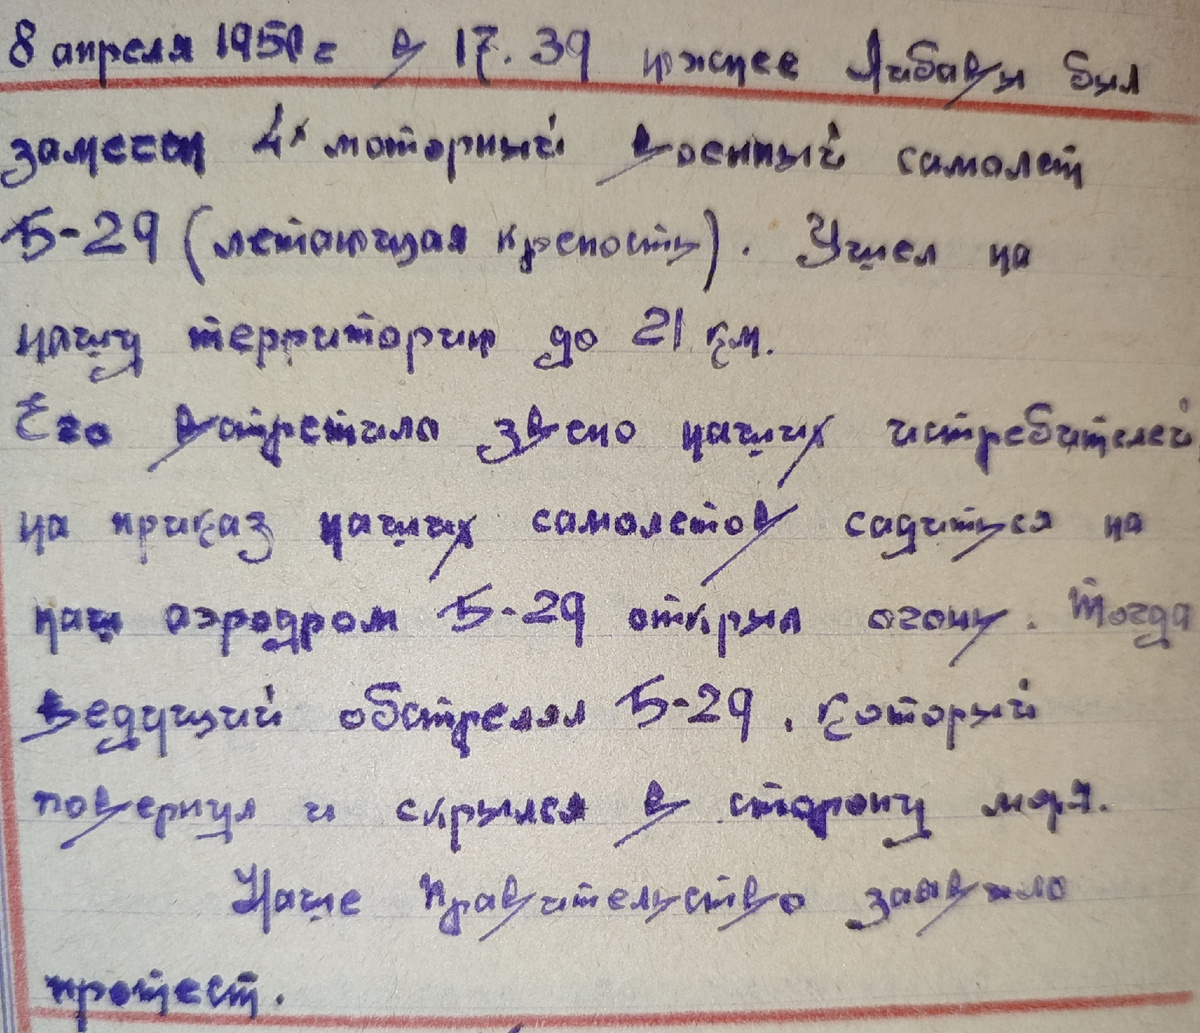 8 апреля 1950 г в 17.39 южнее Либавы был
замечен 4х моторный военный самолет
Б-29 (летающая крепость). Ушел на
нашу территорию до 21 км.
Его встретило звено наших истребителей,
на приказ наших самолетов садиться на
наш аэродром Б-29 открыл огонь. Тогда
ведущий обстрелял Б-29, который
повернул и скрылся в сторону моря.
Наше правительство заявило
протест.